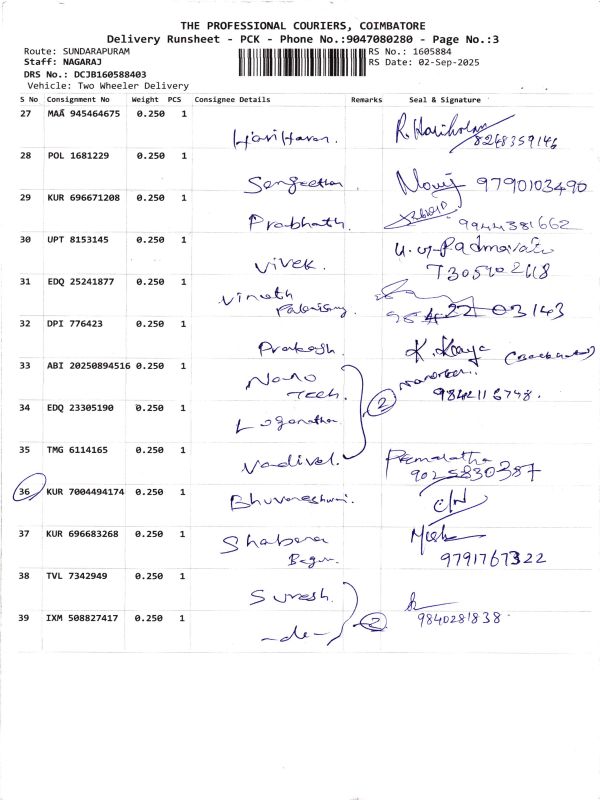 THE PROFESSIONAL COURIERS, COIMBATORE
Delivery Runsheet - PCK - Phone No.:9047080280 - Page No.:3
Route: SUNDARAPURAM
RS No.: 1605884
Staff: NAGARAJ
RS Date: 02-Sep-2025
DRS No.: DCJB160588403
Vehicle: Two Wheeler Delivery
S No Consignment No Weight PCS Consignee Details Remarks Seal & Signature
27 MAA 945464675 0.250 1
Hariharan. R. Hariharan
8248359146
28 POL 1681229 0.250 1
Sangeetha 9790103490
29 KUR 696671208 0.250 1
Prabhath. 9944381662
30 UPT 8153145 0.250 1
Vivek.
7305902618
31 EDQ 25241877 0.250 1
Vinoth
32 DPI 776423 0.250 1
Prakash.
33 ABI 20250894516 0.250 1
Nano
Tech.
2
9842116748.
34 EDQ 23305190 0.250 1
Loganathan
35 TMG 6114165 0.250 1
Vadivel. Premalatha
9025830387
36 KUR 7004494174 0.250 1
Bhuvaneshwari.
37 KUR 696683268 0.250 1
Shabena
Begum.
9791767322
38 TVL 7342949 0.250 1
Suresh.
39 IXM 508827417 0.250 1
9840281838.
-do- 2